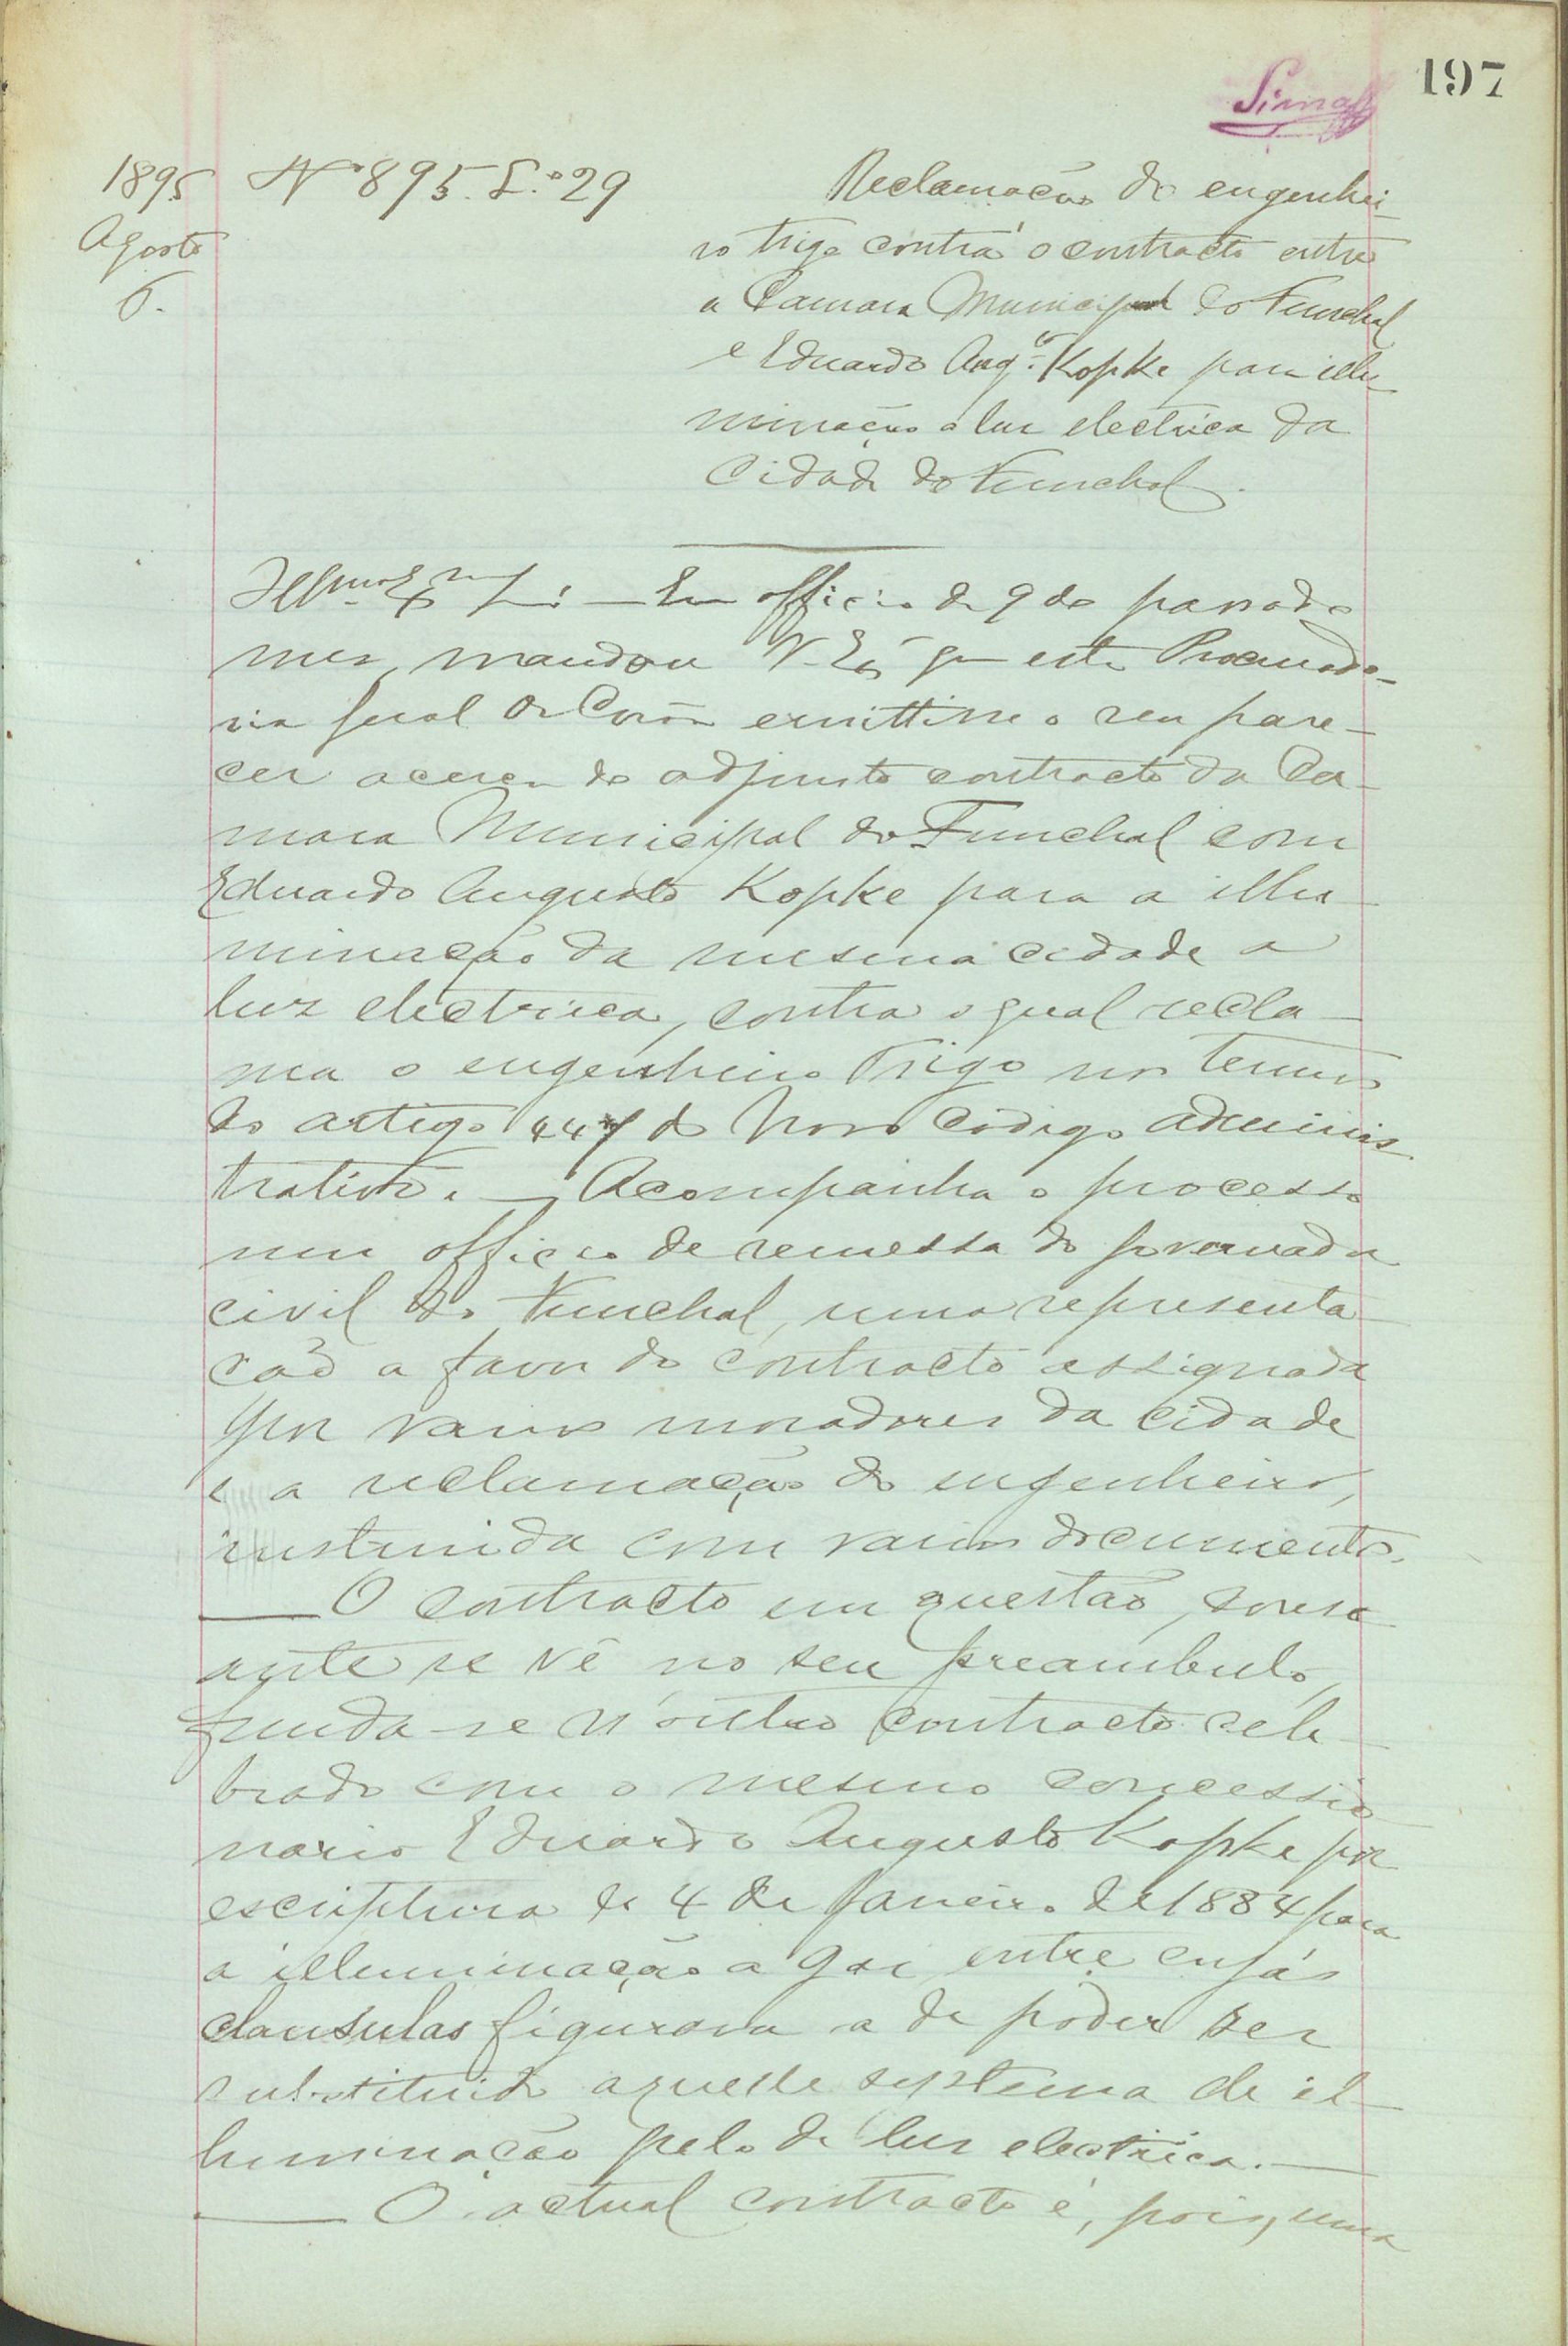 197
1895 Nº 895. L.º 29
Agosto
6.
Reclamação do engenhei-
ro Trigo contra o contracto entre
a Camara Municipal do Funchal
e Eduardo Aug.to Kopke para illu-
minação a luz electrica da
Cidade do Funchal.
Illmo Ex mo Sr. — Em officio de 9 do passado
mez, mandou V. Exª q esta Procurado-
ria Geral da Corôa emittisse o seu pare-
cer acerca do adjunto contracto da Ca-
mara Municipal do Funchal com
Eduardo Augusto Kopke para a illu-
minação da mesma cidade a
luz electrica, contra o qual recla-
ma o engenheiro Trigo nos termos
do artigo 447 do Novo Codigo adminis
trativo. — Acompanha o processo
um officio de remessa do governador
civil do Funchal, uma representa-
ção a favor do contracto assignada
por varios moradores da cidade
e a reclamação do engenheiro,
instruida com varios documentos.
— O contracto em questão, conso
ante se vê no seu preambulo,
funda-se n'outro contracto cele-
brado com o mesmo concessio
nario Eduardo Augusto Kopke por
escriptura de 4 de Janeiro de 1884 para
a illuminação a gaz, entre cujas
clausulas figurava a de poder ser
substituido aquelle systema de il-
luminação pelo de luz electrica. —
— O actual contracto é, pois, uma